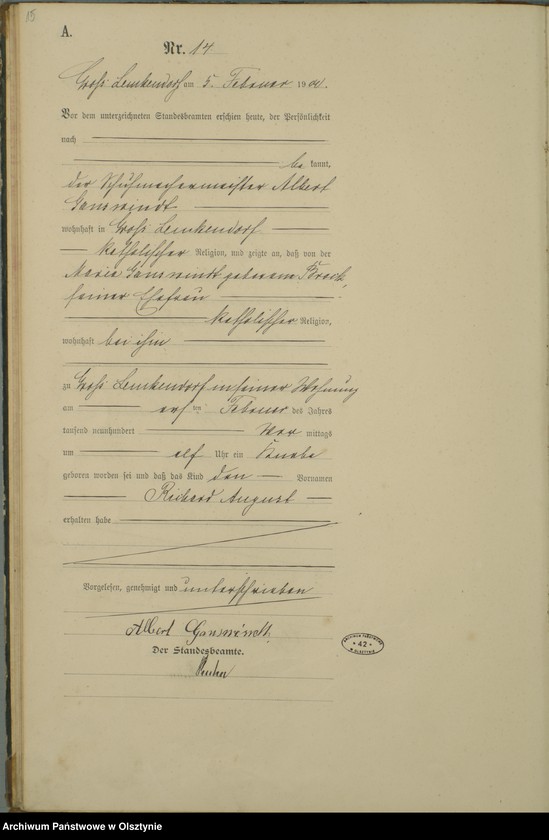 15
A.
Nr. 14
Groß Lemkendorf am 5. Februar 1900.
Vor dem unterzeichneten Standesbeamten erschien heute, der Persönlichkeit
nach
be kannt,
der Schuhmachermeister Albert
Ganswindt
wohnhaft in Groß Lemkendorf
katholischer Religion, und zeigte an, daß von der
Maria Ganswindt geborenen
seiner Ehefrau
katholischer Religion,
wohnhaft bei ihm
zu Groß Lemkendorf in seiner Wohnung
am ersten Februar des Jahres
tausend neunhundert Vor mittags
um elf Uhr ein Knabe
geboren worden sei und daß das Kind den Vornamen
Richard August
erhalten habe
Vorgelesen, genehmigt und unterschrieben
Albert Ganswindt
Der Standesbeamte.
ARCHIWUM PAŃSTWOWE
* 42 *
W OLSZTYNIE
Archiwum Państwowe w Olsztynie